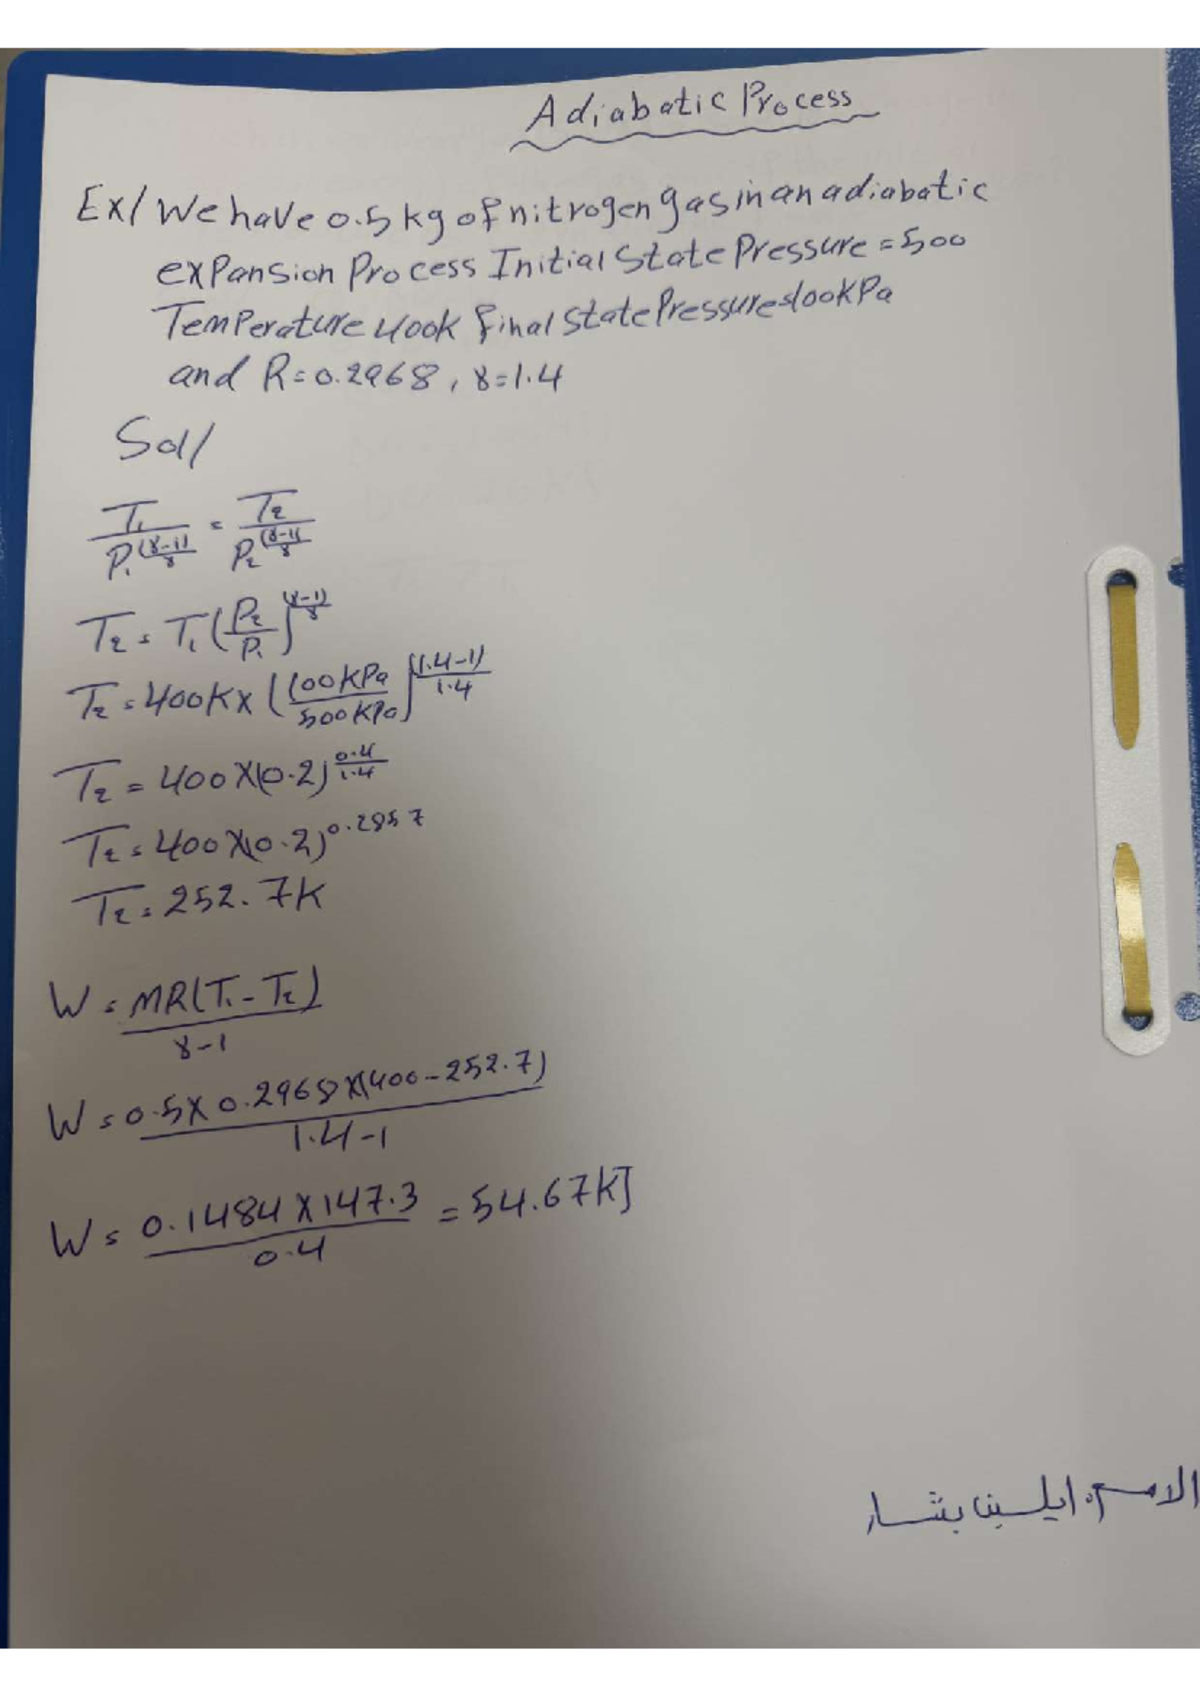 Adiabatic Process
Ex/ We have 0.5 kg of nitrogen gas in an adiabatic
expansion Process Initial State Pressure = 500
Temperature 400k final State Pressure = 100 kPa
and R = 0.2968, γ = 1.4
Sol/
T₁ / P₁^((γ-1)/γ) = T₂ / P₂^((γ-1)/γ)
T₂ = T₁ (P₂/P₁)^((γ-1)/γ)
T₂ = 400K x (100 kPa / 500 kPa)^((1.4-1)/1.4)
T₂ = 400 x (0.2)^(0.4/1.4)
T₂ = 400 x (0.2)^0.2857
T₂ = 252.7K
W = MR(T₁ - T₂) / γ-1
W = 0.5 x 0.2968 x (400 - 252.7) / 1.4-1
W = 0.1484 x 147.3 / 0.4 = 54.67 kJ
الاسم: ايلين بشار